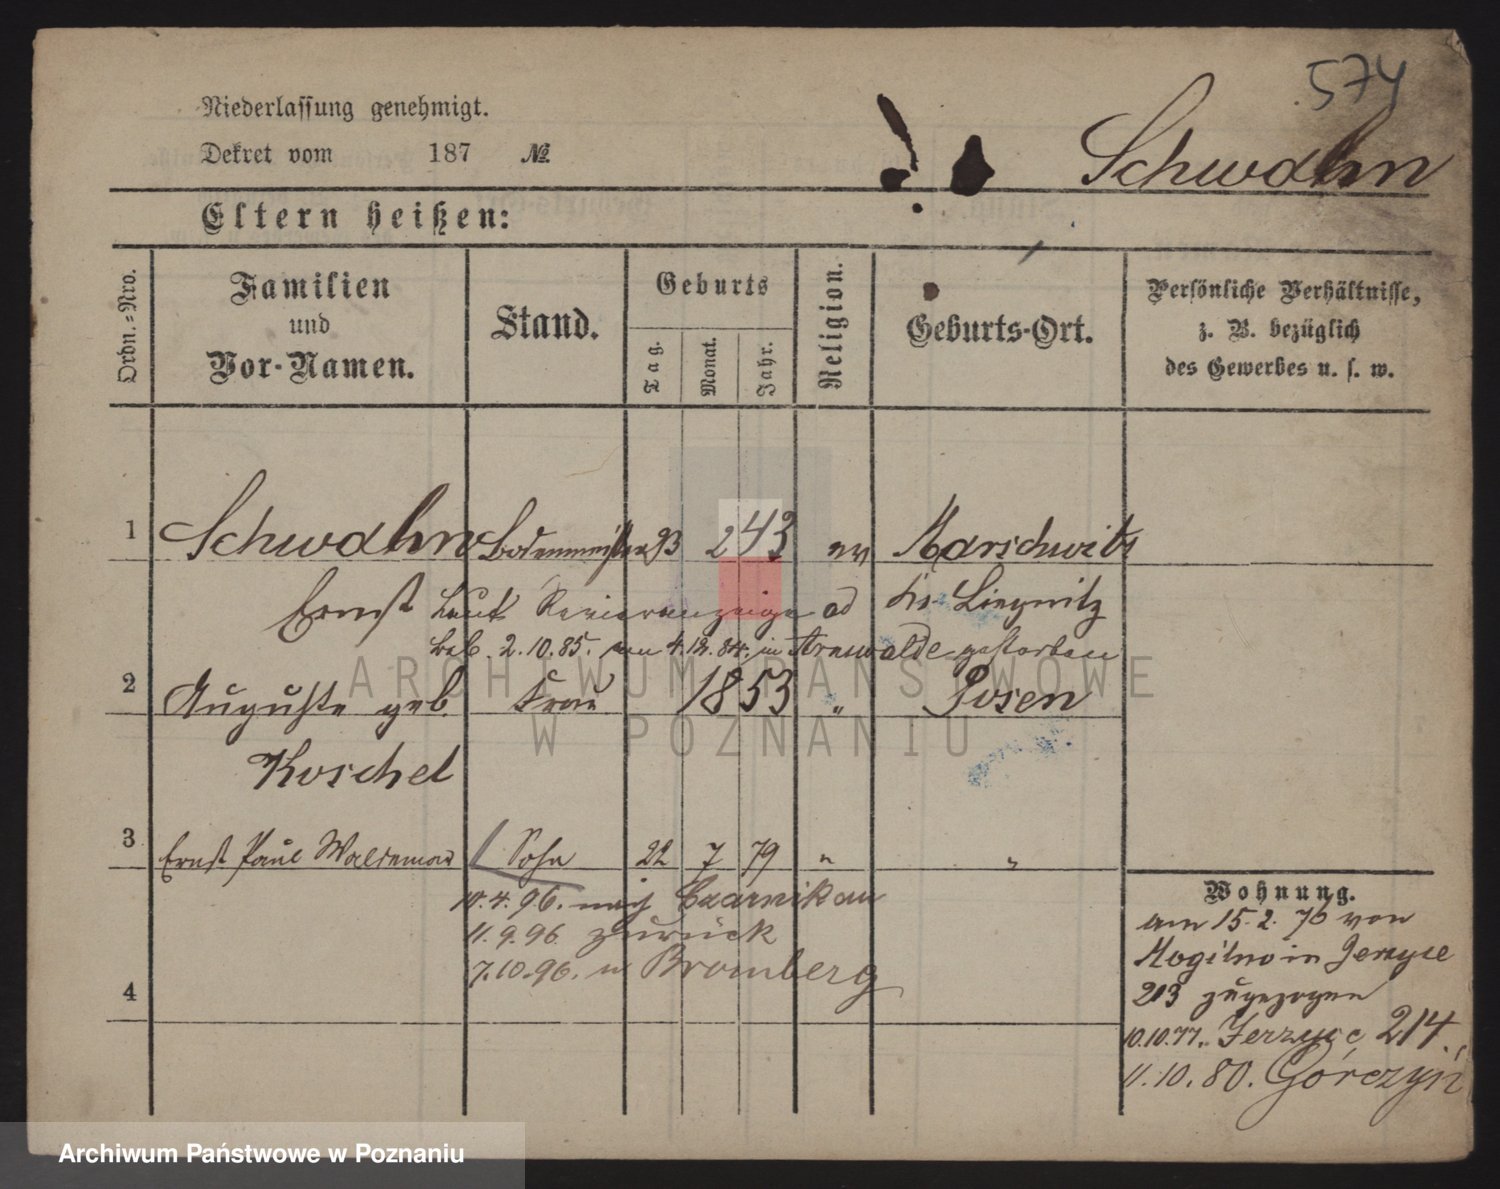 574
Niederlassung genehmigt.
Dekret vom 187 №
Schwahn
Eltern heißen:
Ordn.-Nro.
Familien
und
Vor-Namen.
Stand.
Geburts
Tag.
Monat.
Jahr.
Religion.
Geburts-Ort.
Persönliche Verhältnisse,
z. B. bezüglich
des Gewerbes u. s. w.
1 Schwahn Bodenmeister 23 2 43 ev Marschwitz
Ernst Laut Revieranzeige ad Krs. Liegnitz
2.10.85. am 4.12.84. in Arnswalde gestorben
2 Auguste geb. Frau 1853 " Posen
Koschel
3 Ernst Paul Waldemar Sohn 22 7 79 " "
4.96. nach Czarnikau
11.9.96 zurück
7.10.96. n Bromberg
4
Wohnung.
am 15.2.76 von
Mogilno in Jerzyce
213 zugezogen
10.10.77. Jerzyce 214.
11.10.80. Górczyn
ARCHIWUM PAŃSTWOWE
W POZNANIU
Archiwum Państwowe w Poznaniu